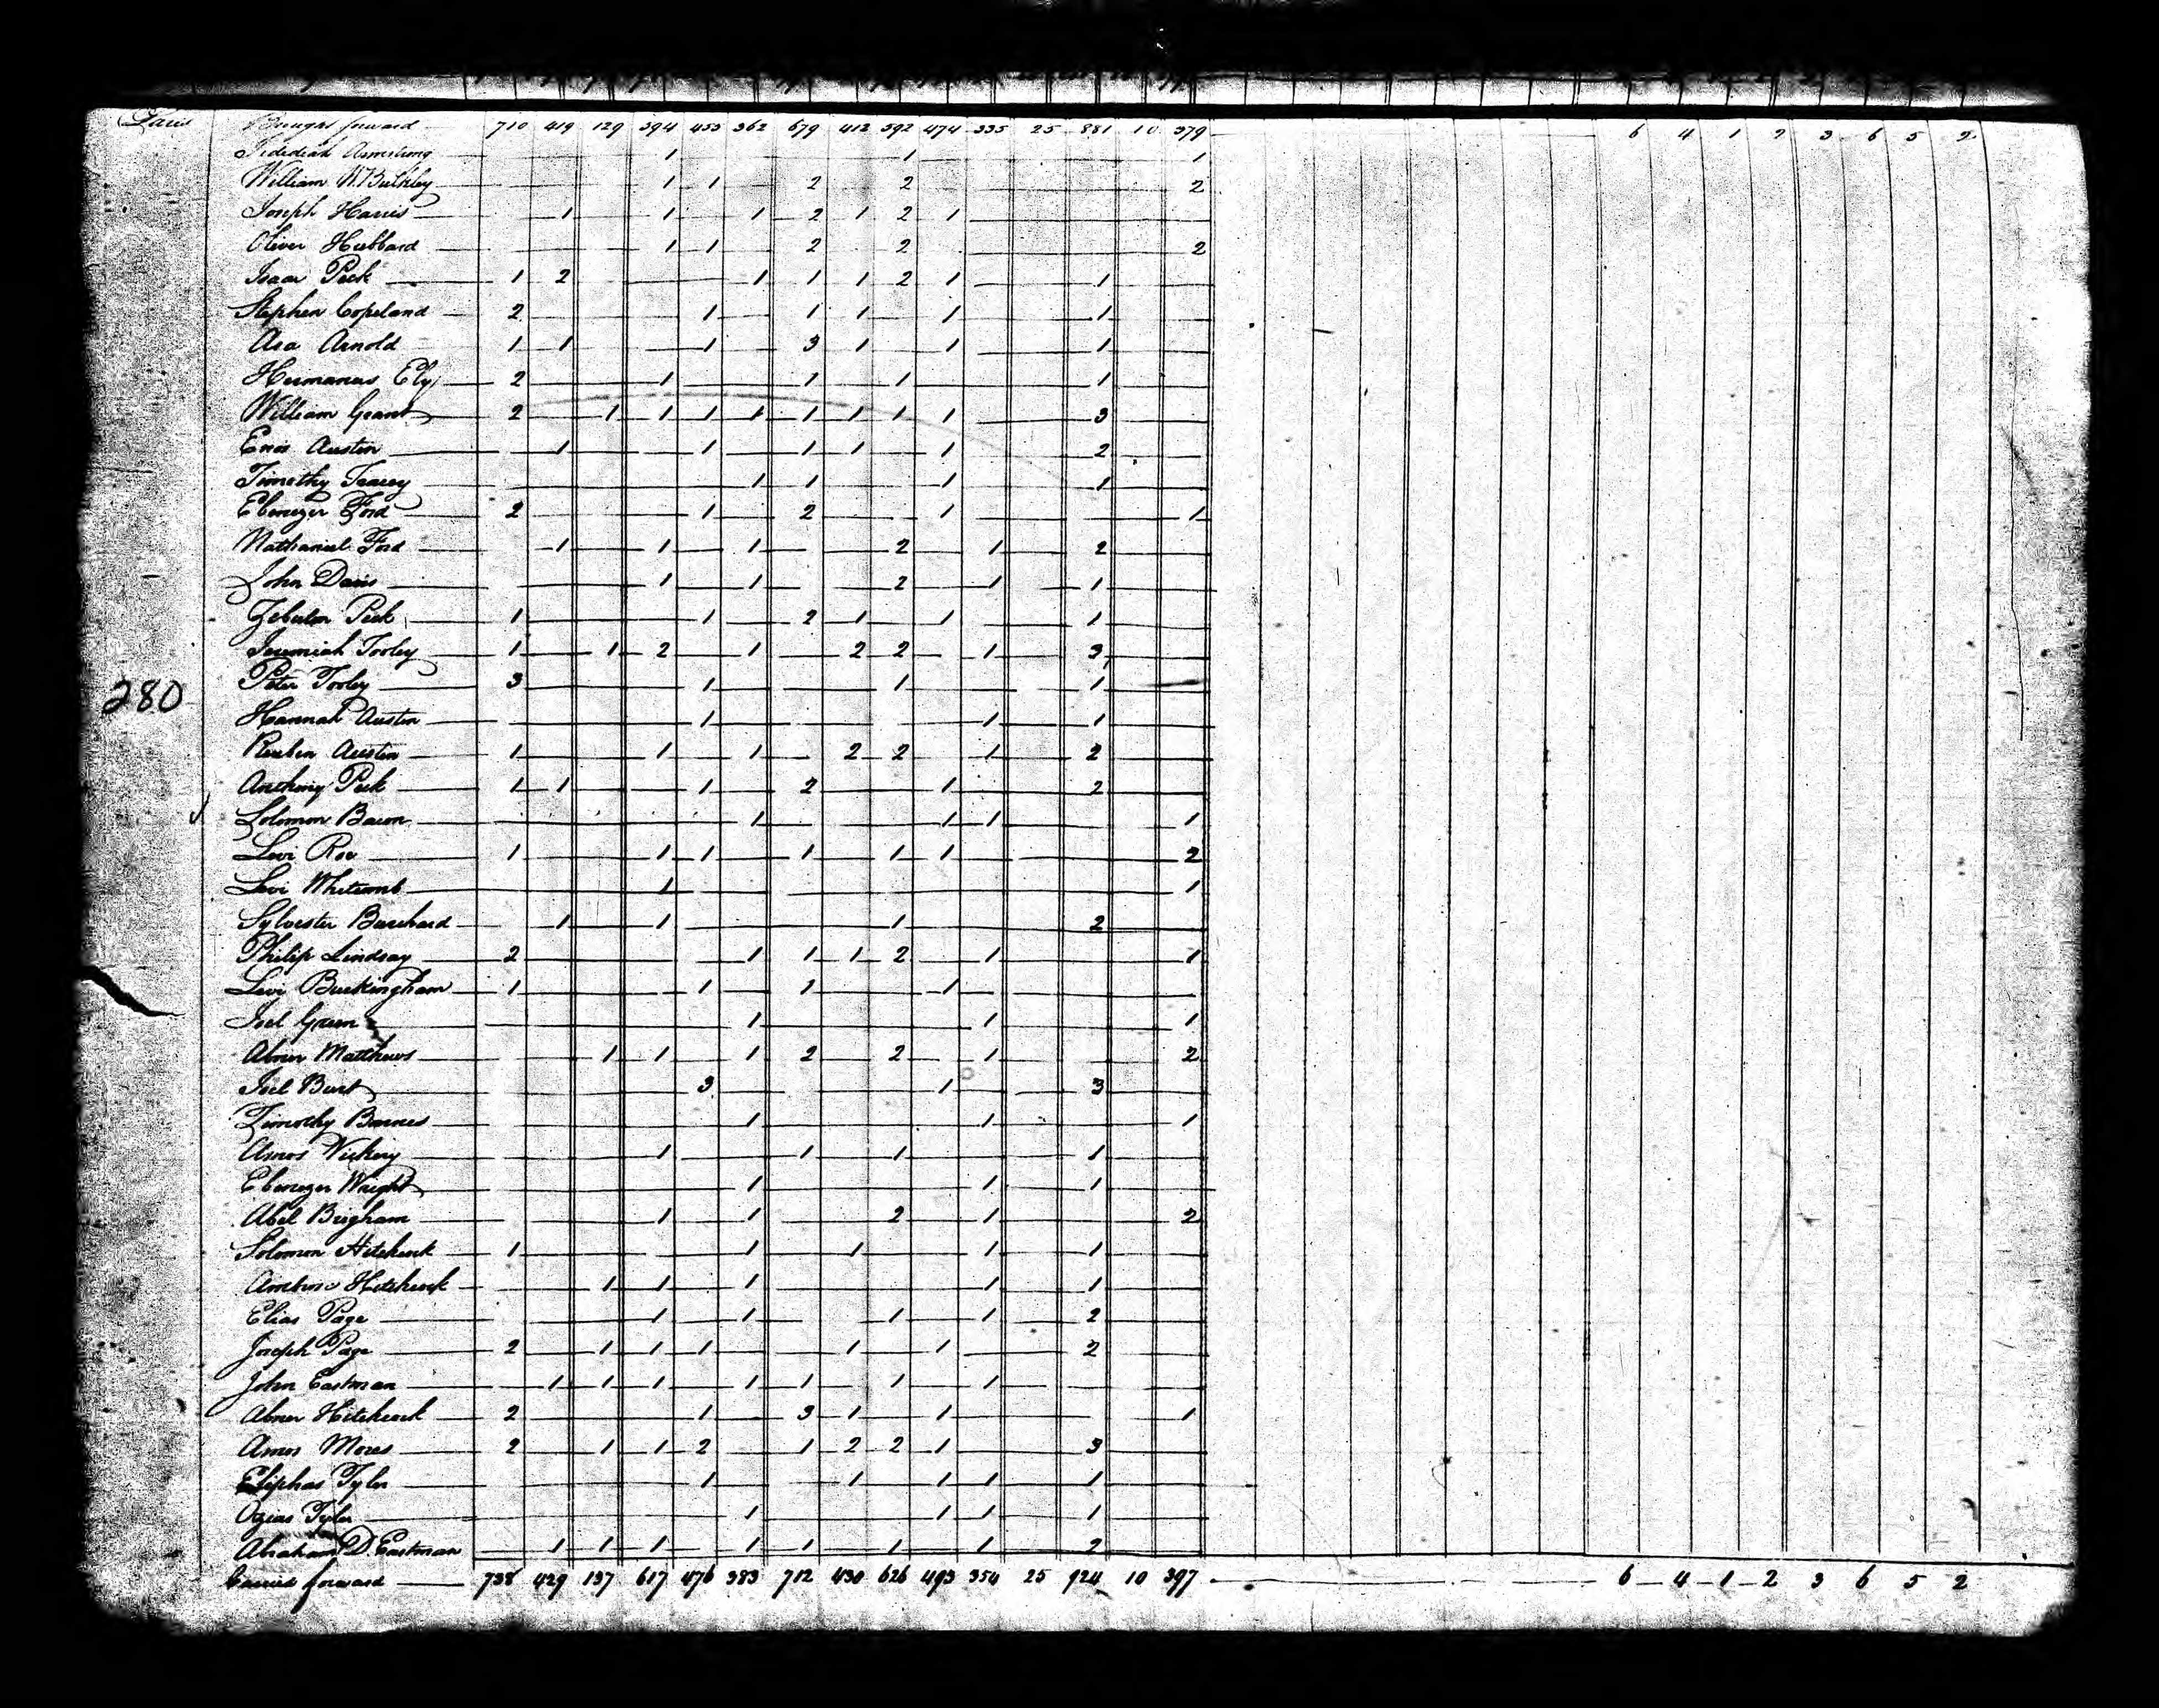 Paris Brought forward 710 419 129 594 453 362 679 412 592 474 335 25 881 10 379 6 4 1 2 3 6 5 2
Jedediah Armstrong 1 1 1
William W. Bulkley 1 1 2 2 2
Joseph Harris 1 1 1 2 1 2 1
Oliver Hubbard 1 1 2 2 2
Isaac Peck 1 2 1 1 1 2 1 1
Stephen Copeland 2 1 1 1 1 1
Asa Arnold 1 1 1 3 1 1 1
Hermanus Ely 2 1 1 1 1
William Grant 2 1 1 1 1 1 1 1 1 3
Enos Austin 1 1 1 1 1 2
Timothy Tracey 1 1 1 1
Ebenezer Ford 2 1 2 1 1
Nathaniel Ford 1 1 1 2 1 2
John Davis 1 1 2 1 1
Zebulon Peck 1 1 2 1 1 1
Jeremiah Tooley 1 1 2 1 2 2 1 3
Peter Tooley 3 1 1 1
Hannah Austin 1 1 1
Reuben Austin 1 1 1 2 2 1 2
280
Anthony Peck 1 1 1 2 1 2
Solomon Bacon 1 1 1 1
Levi Roe 1 1 1 1 1 1 2
Levi Whitcomb 1 1
Sylvester Burchard 1 1 1 2
Philip Lindsay 2 1 1 1 2 1 1
Levi Buckingham 1 1 1 1
Joel Green 1 1 1
Abner Matthews 1 1 1 2 2 1 2
Joel Burt 3 1 3
Timothy Barnes 1 1 1
Amos Vickery 1 1 1 1
Ebenezer Wright 1 1 1
Abel Brigham 1 1 2 1 2
Solomon Hitchcock 1 1 1 1 1
Ambrose Hitchcock 1 1 1 1 1
Elias Page 1 1 1 1 2
Joseph Page 2 1 1 1 1 1 2
John Eastman 1 1 1 1 1 1 1
Abner Hitchcock 2 1 3 1 1 1
Amos Moses 2 1 1 2 1 2 2 1 3
Eliphas Tyler 1 1 1 1 1
Ozias Tyler 1 1 1 1
Abraham D. Eastman 1 1 1 1 1 1 1 2
Carried forward 738 429 137 617 476 383 712 430 626 493 354 25 924 10 397 6 4 1 2 3 6 5 2